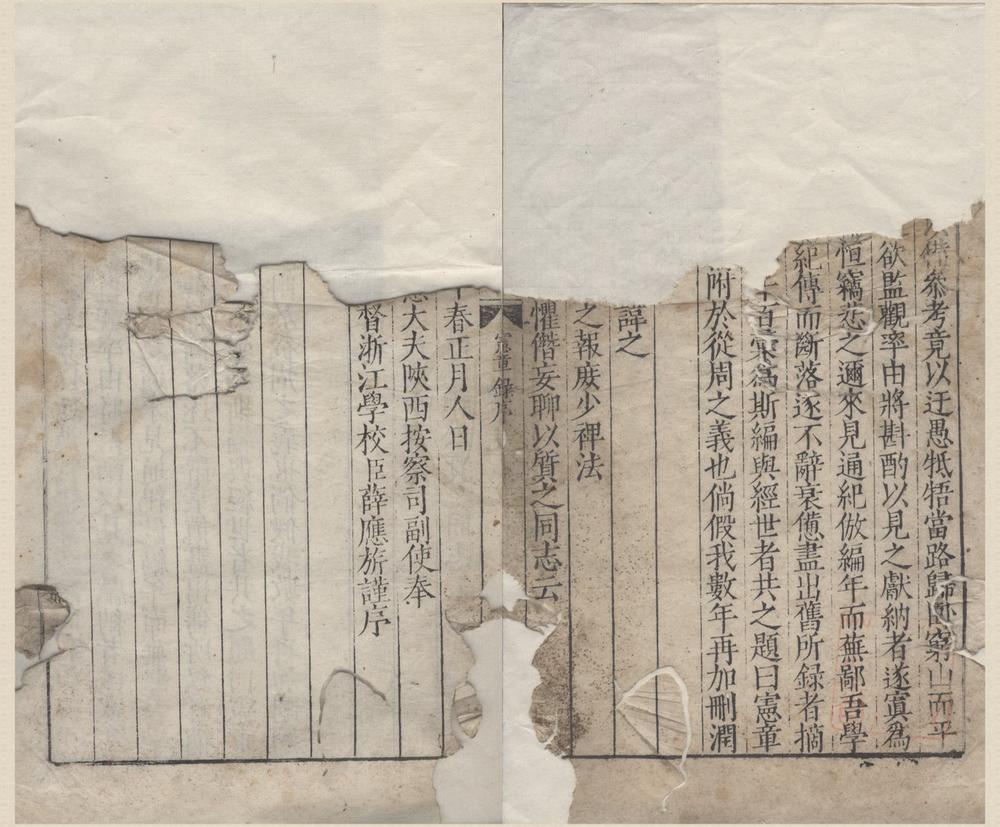 參考竟以迂愚牴牾當路歸臥窮山而平
欲監觀率由將斟酌以見之獻納者遂寘為
恒竊悲之邇來見通紀倣編年而蕪鄙吾學
紀傳而斷落遂不辭衰憊盡出舊所録者摘
十百彙為斯編與經世者共之題曰憲章
附於從周之義也倘假我數年再加刪潤
諱之
之報庶少裨法
懼僭妄聊以質之同志云
憲章録序
春正月人日
大夫陝西按察司副使奉
督浙江學校臣薛應旂謹序